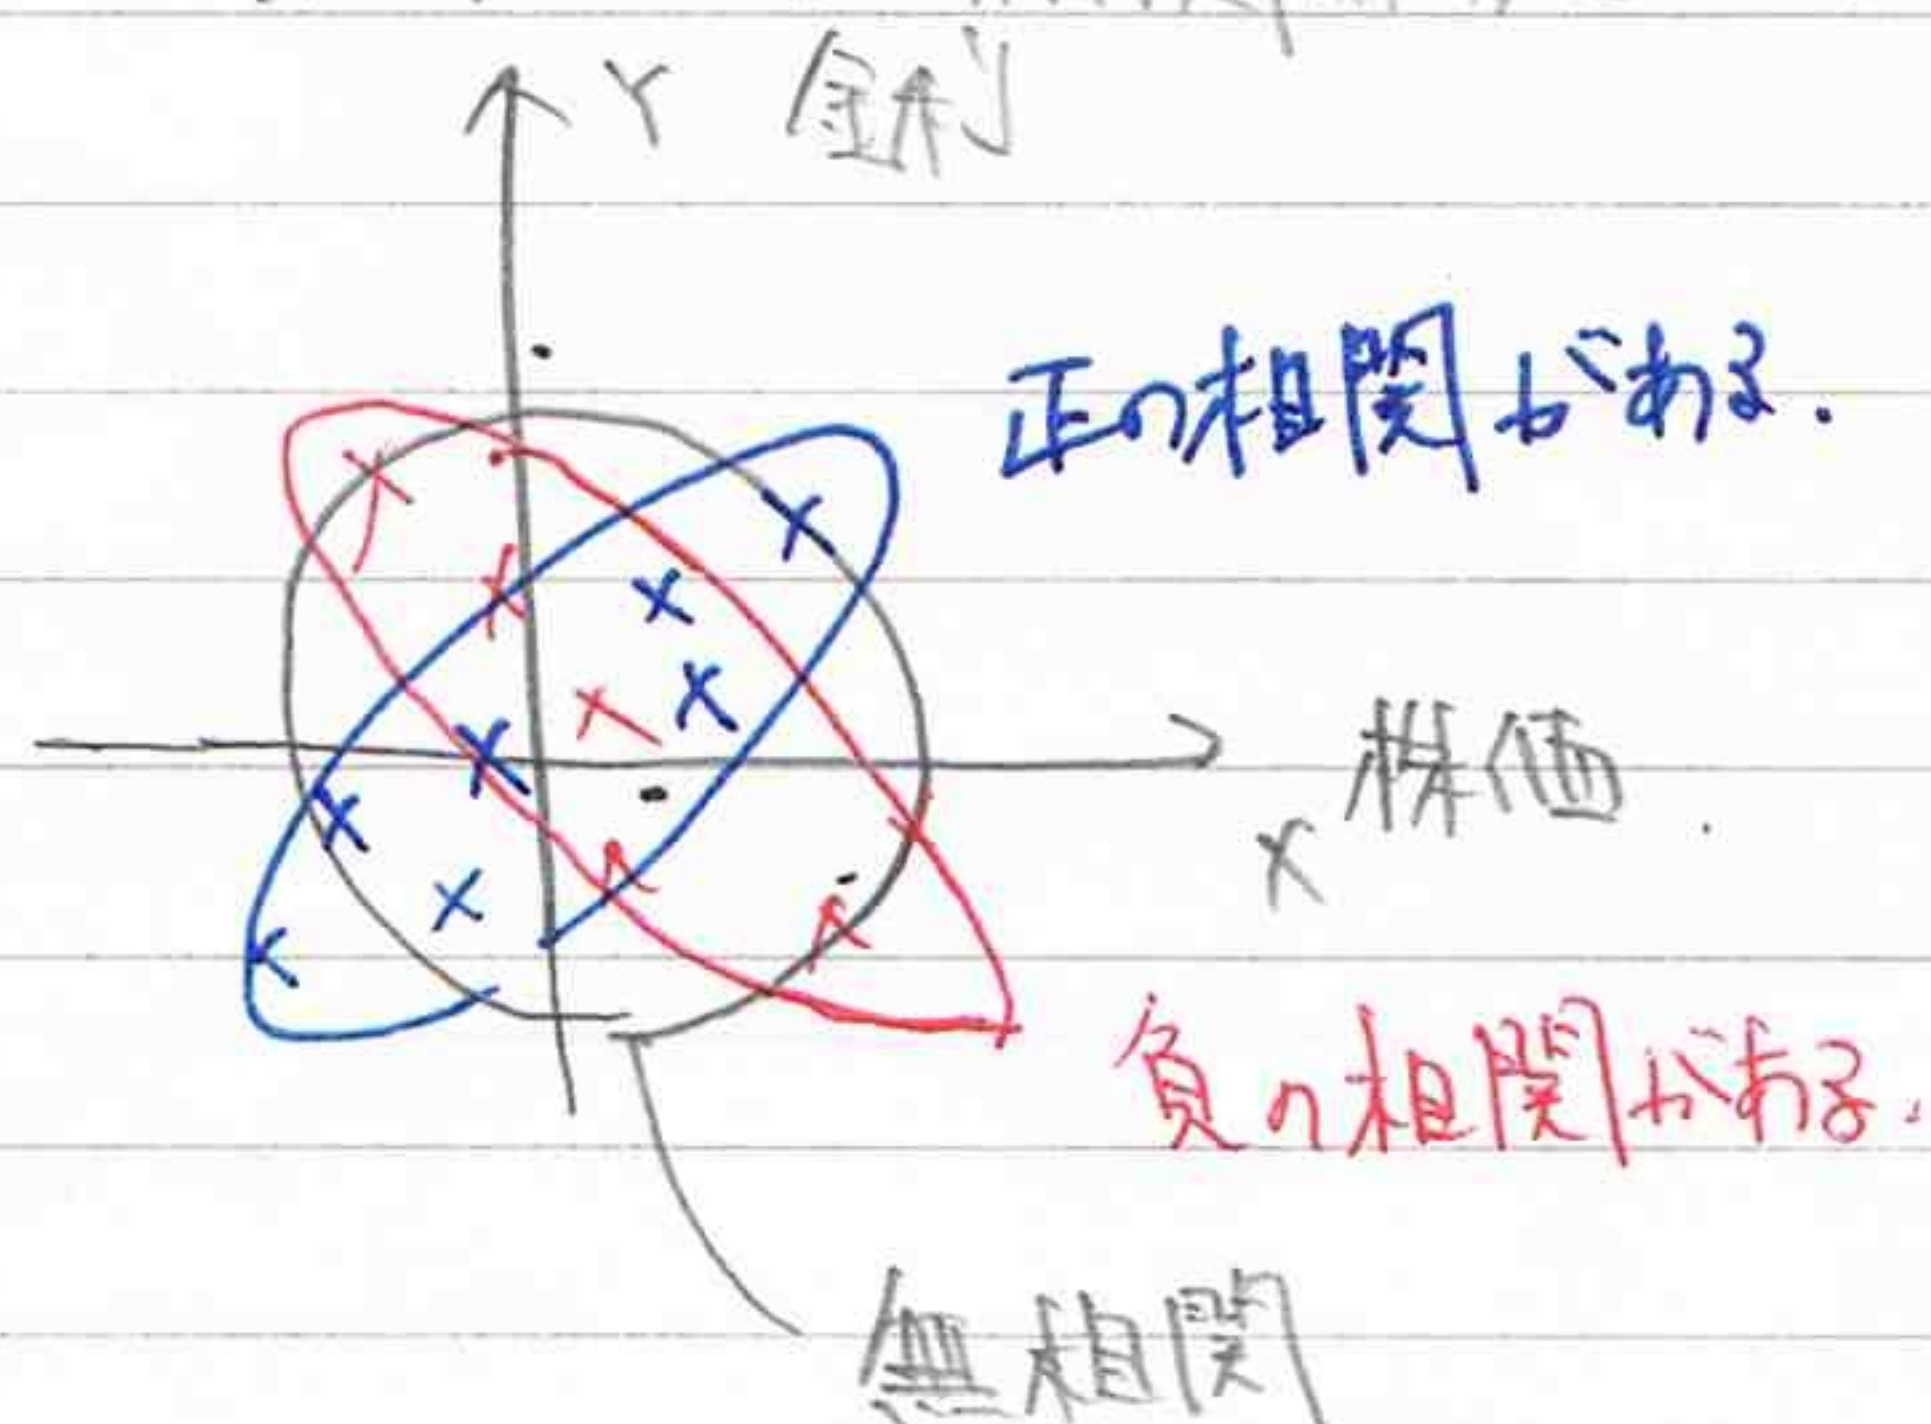 Y 金利
正の相関がある.
株価
x
負の相関がある.
無相関